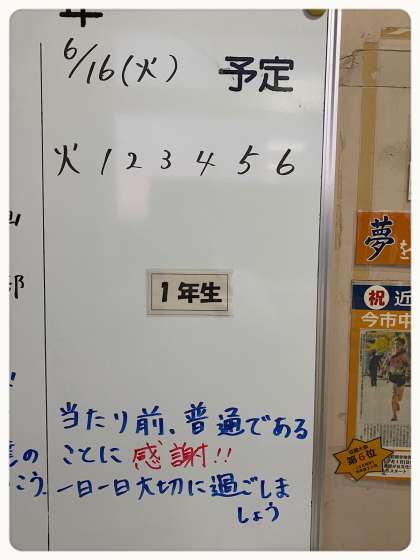 年
6/16(火) 予定
火 1 2 3 4 5 6
1年生
当たり前、普通である
ことに感謝!!
一日一日大切に過ごしま
しょう
部
の
こう。
夢
を
祝 近
今市中
第6位